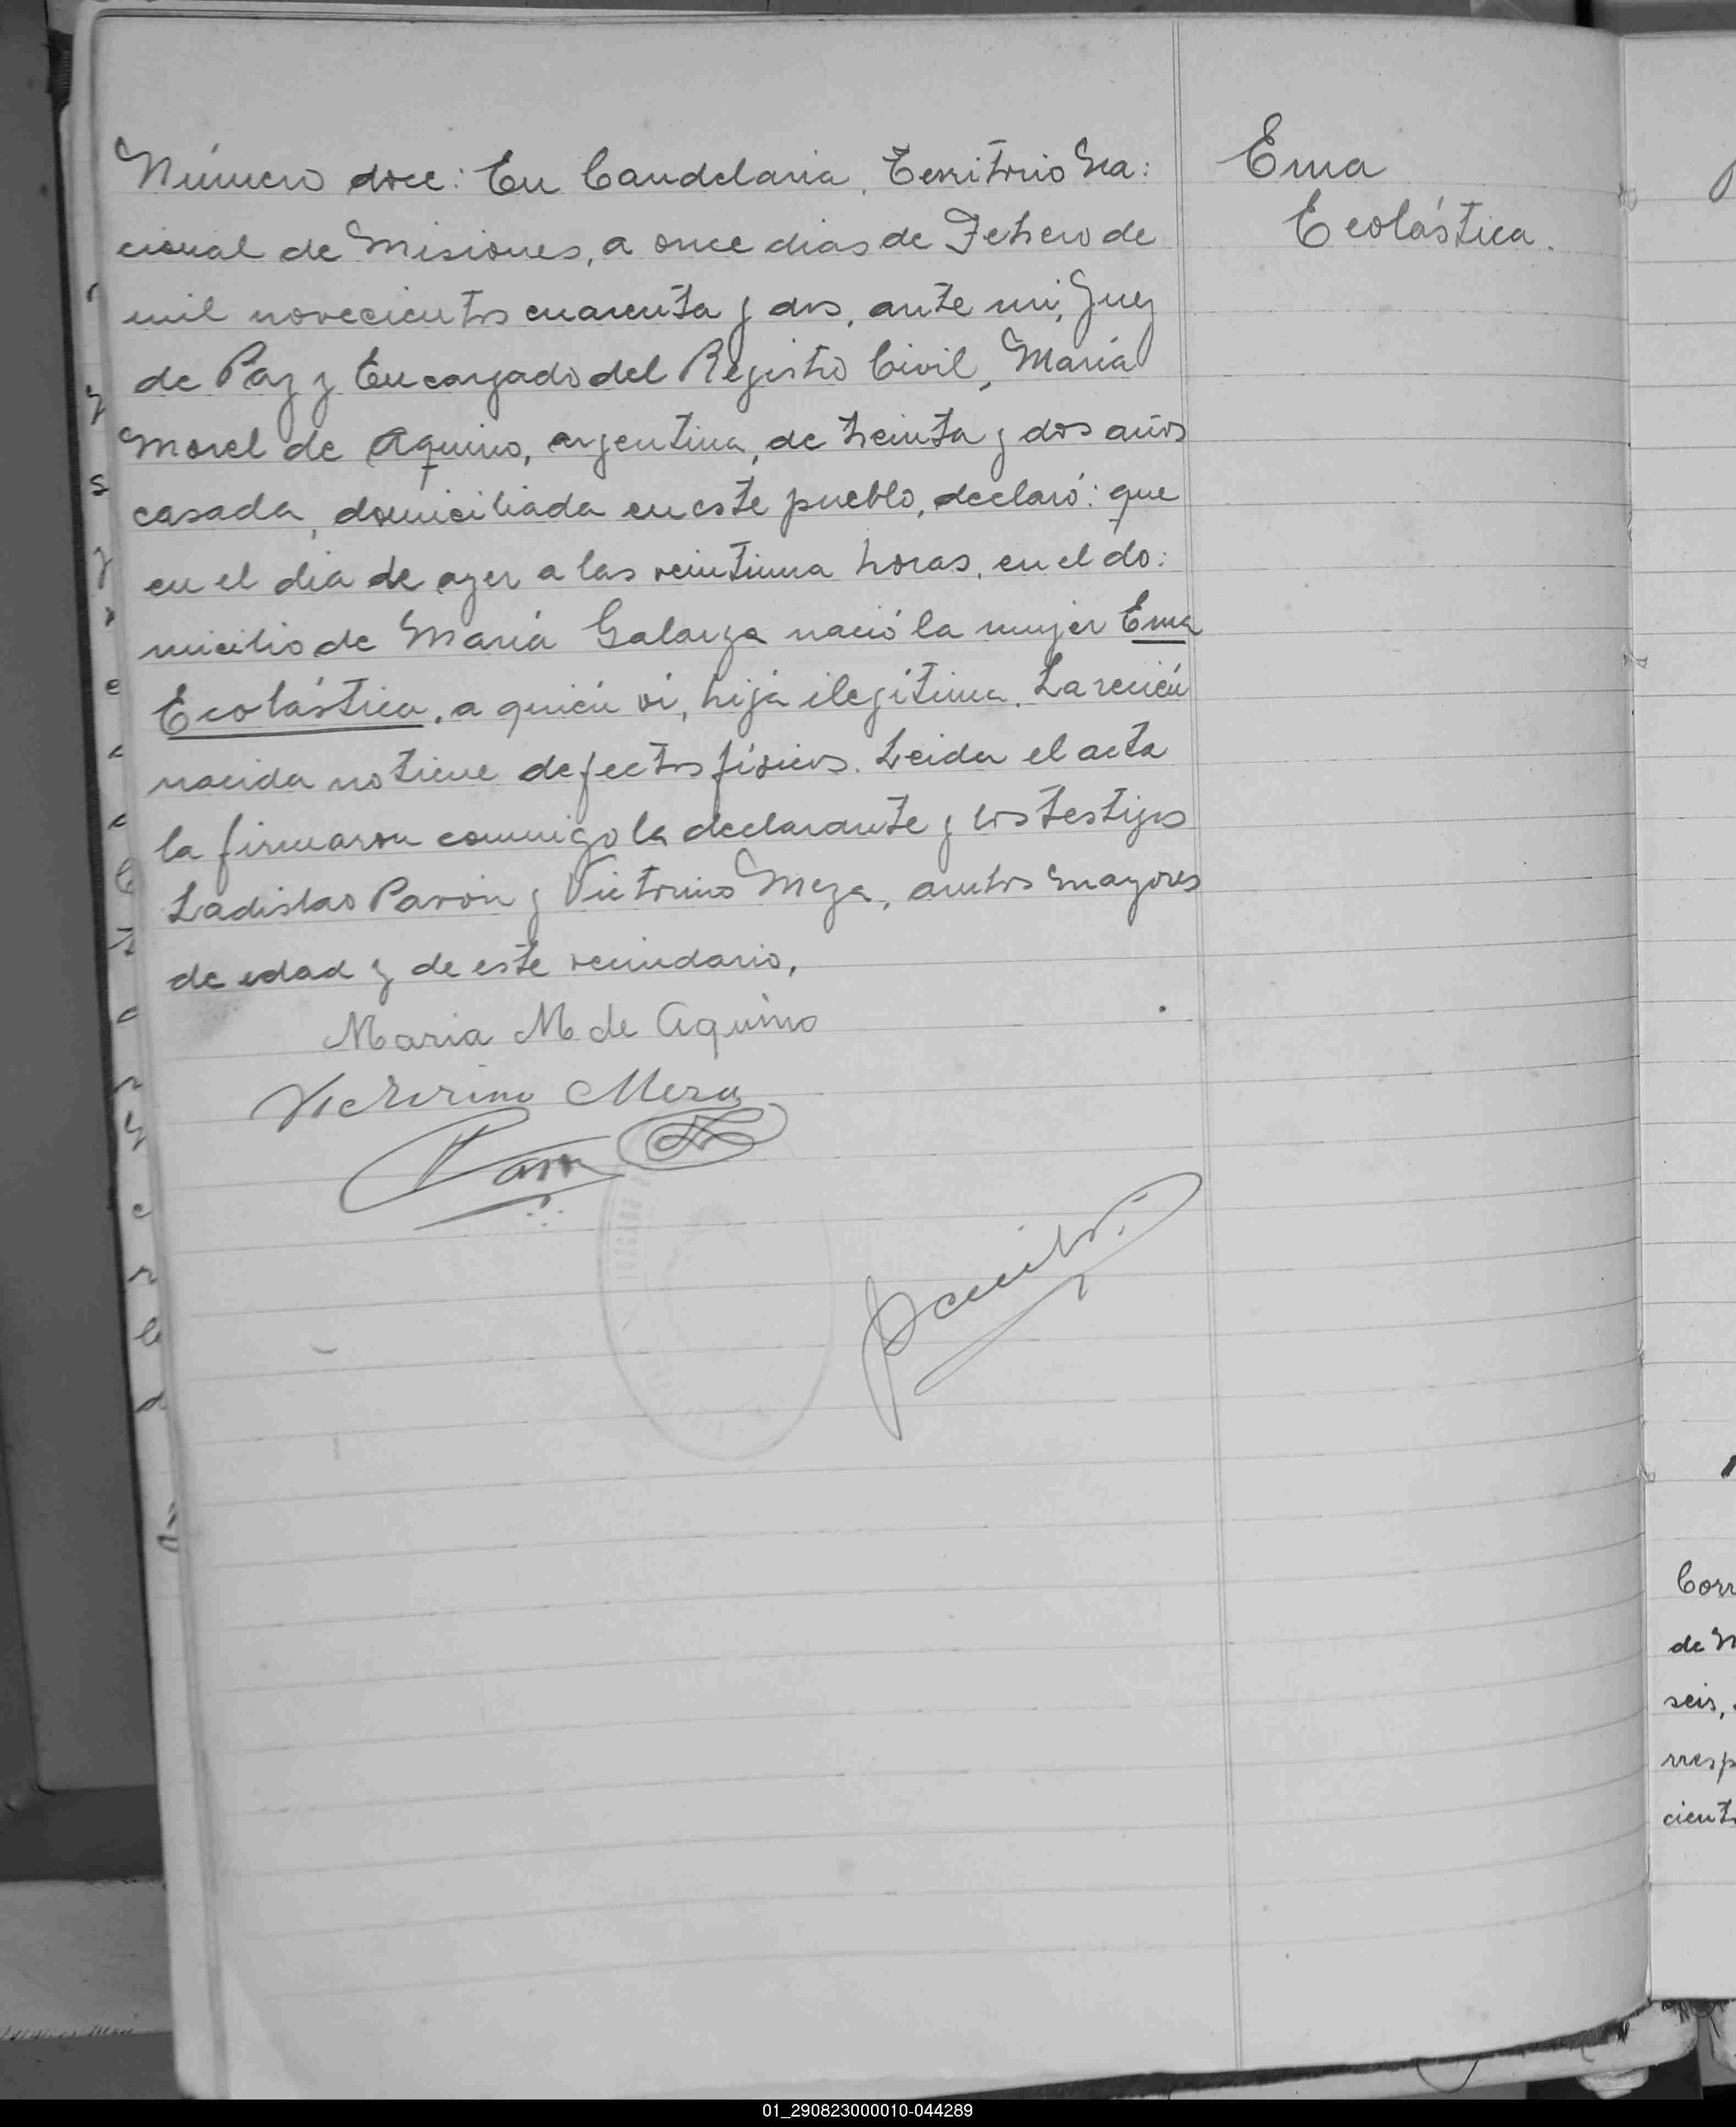 Número doce: En Candelaria, Territorio Na:
cional de Misiones, a once dias de Febrero de
mil novecientos cuarenta y dos, ante mi, Juez
de Paz y Encargado del Registro Civil, María
Morel de Aquino, argentina, de treinta y dos años
casada, domiciliada en este pueblo, declaró: que
en el dia de ayer a las veintiuna horas, en el do:
micilio de María Galarza nació la mujer Ema
Ecolástica, a quién ví, hija ilegítima. La recién
nacida no tiene defectos físicos. Leida el acta
la firmaron conmigo la declarante y los testigos
Ladislao Pavón y Victorino Meza, ambos mayores
de edad y de este vecindario,
Maria M de Aquino
Victorino Meza
Ema
Ecolástica.
Corr
de M
seis,
rresp
cient
01_290823000010-044289